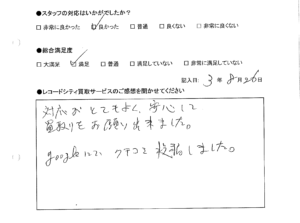 ●スタッフの対応はいかがでしたか？
□非常に良かった ☑良かった □普通 □良くない □非常に良くない
●総合満足度
□大満足 ☑満足 □普通 □満足していない □非常に満足していない
記入日 3年8月20日
●レコードシティ買取サービスのご感想を聞かせてください
対応がとてもよく、安心して
買取りをお願い出来ました。
googleにて クチコミ 投稿しました。